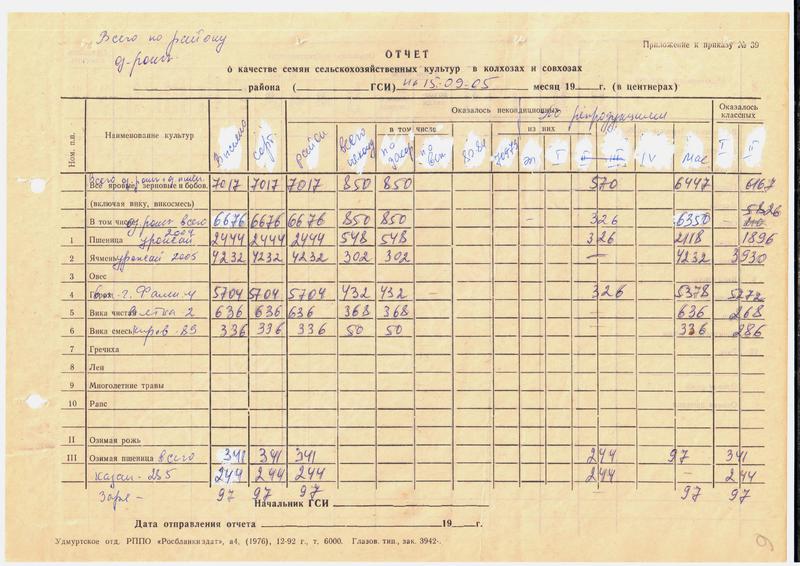 Всего по району
Приложение к приказу № 39
ОТЧЕТ
о качестве семян сельскохозяйственных культур в колхозах и совхозах
района ( ГСИ) на 15-09-05 месяц 19 г. (в центнерах)
Ном. п.п.
Наименование культур
Оказалось некондиционных
по репродукциям
Оказалось классных
в том числе
из них
сорт. район всего по засор. по вл. эл I II III IV Мас I II
Всего
Все яровые зерновые и бобов. 7017 7017 7017 850 850 570 6447 6167
(включая вику, викосмесь) 5826
В том числе оз. рожь всего 6676 6676 6676 850 850 — 326 6350
2004
1 Пшеница урожай 2444 2444 2444 548 548 326 2118 1896
2 Ячмень урожай 2005 4232 4232 4232 302 302 — 4232 3930
3 Овес
4 Горох 5704 5704 5704 432 432 — 326 5378 5272
5 Вика чистая Вятка 2 636 636 636 368 368 636 268
6 Вика смесь Киров-89 336 336 336 50 50 336 286
7 Гречиха
8 Лен
9 Многолетние травы
10 Рапс
II Озимая рожь
III Озимая пшеница всего 341 341 341 244 97 341
Казан-285 244 244 244 244 — 244
Заря — 97 97 97 — 97 97
Начальник ГСИ
Дата отправления отчета 19 г.
Удмуртское отд. РППО «Росбланкиздат», а4, (1976), 12-92 г., т. 6000. Глазов. тип., зак. 3942-.
9